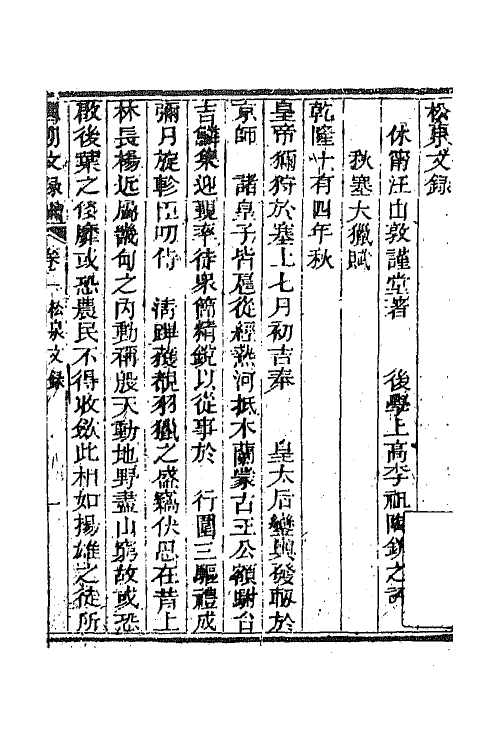 松泉文錄
休甯汪由敦謹堂著　後學上高李祖陶欽之評
秋塞大獵賦
乾隆十有四年秋
皇帝獮狩於塞上七月初吉奉　皇太后鑾輿發軔於
京師　諸皇子皆扈從經熱河抵木蘭蒙古王公額駙台
吉鱗集迎觀率徒衆簡精銳以從事於　行圍三驅禮成
彌月旋軫臣叨侍　淸蹕獲覩羽獵之盛竊伏思在昔上
林長楊近屬畿甸之內動稱殷天動地野盡山窮故或恐
啟後葉之侈靡或恐農民不得收斂此相如揚雄之徒所
國朝文錄 卷一 松泉文錄 一